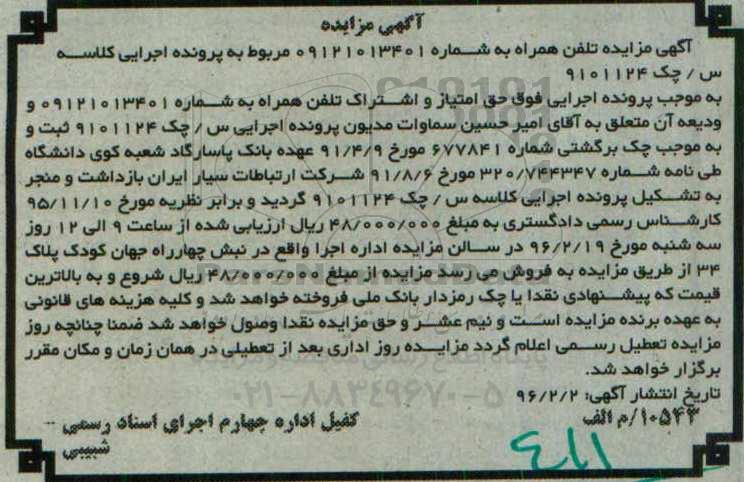 آگهی مزایده
آگهی مزایده تلفن همراه به شماره ۰۹۱۲۱۰۱۳۴۰۱ مربوط به پرونده اجرایی کلاسه
س / چک ۹۱۰۱۱۲۴
به موجب پرونده اجرایی فوق حق امتیاز و اشتراک تلفن همراه به شماره ۰۹۱۲۱۰۱۳۴۰۱ و
ودیعه آن متعلق به آقای امیرحسین سماوات مدیون پرونده اجرایی س / چک ۹۱۰۱۱۲۴ ثبت و
به موجب چک برگشتی شماره ۶۷۷۸۴۱ مورخ ۹۱/۴/۹ عهده بانک پاسارگاد شعبه کوی دانشگاه
طی نامه شماره ۳۲۰/۷۴۴۳۴۷ مورخ ۹۱/۸/۶ شرکت ارتباطات سیار ایران بازداشت و منجر
به تشکیل پرونده اجرایی کلاسه س / چک ۹۱۰۱۱۲۴ گردید و برابر نظریه مورخ ۹۵/۱۱/۱۰
کارشناس رسمی دادگستری به مبلغ ۴۸/۰۰۰/۰۰۰ ریال ارزیابی شده از ساعت ۹ الی ۱۲ روز
سه شنبه مورخ ۹۶/۲/۱۹ در سالن مزایده اداره اجرا واقع در نبش چهارراه جهان کودک پلاک
۳۴ از طریق مزایده به فروش می رسد مزایده از مبلغ ۴۸/۰۰۰/۰۰۰ ریال شروع و به بالاترین
قیمت که پیشنهادی نقدا یا چک رمزدار بانک ملی فروخته خواهد شد و کلیه هزینه های قانونی
به عهده برنده مزایده است و نیم عشر و حق مزایده نقدا وصول خواهد شد ضمنا چنانچه روز
مزایده تعطیل رسمی اعلام گردد مزایده روز اداری بعد از تعطیلی در همان زمان و مکان مقرر
برگزار خواهد شد.
تاریخ انتشار آگهی: ۹۶/۲/۲
۰۲۱-۸۸۳۴۹۶۷۰-۵
۱۰۵۴۳/م الف
کفیل اداره چهارم اجرای اسناد رسمی -
شبیبی